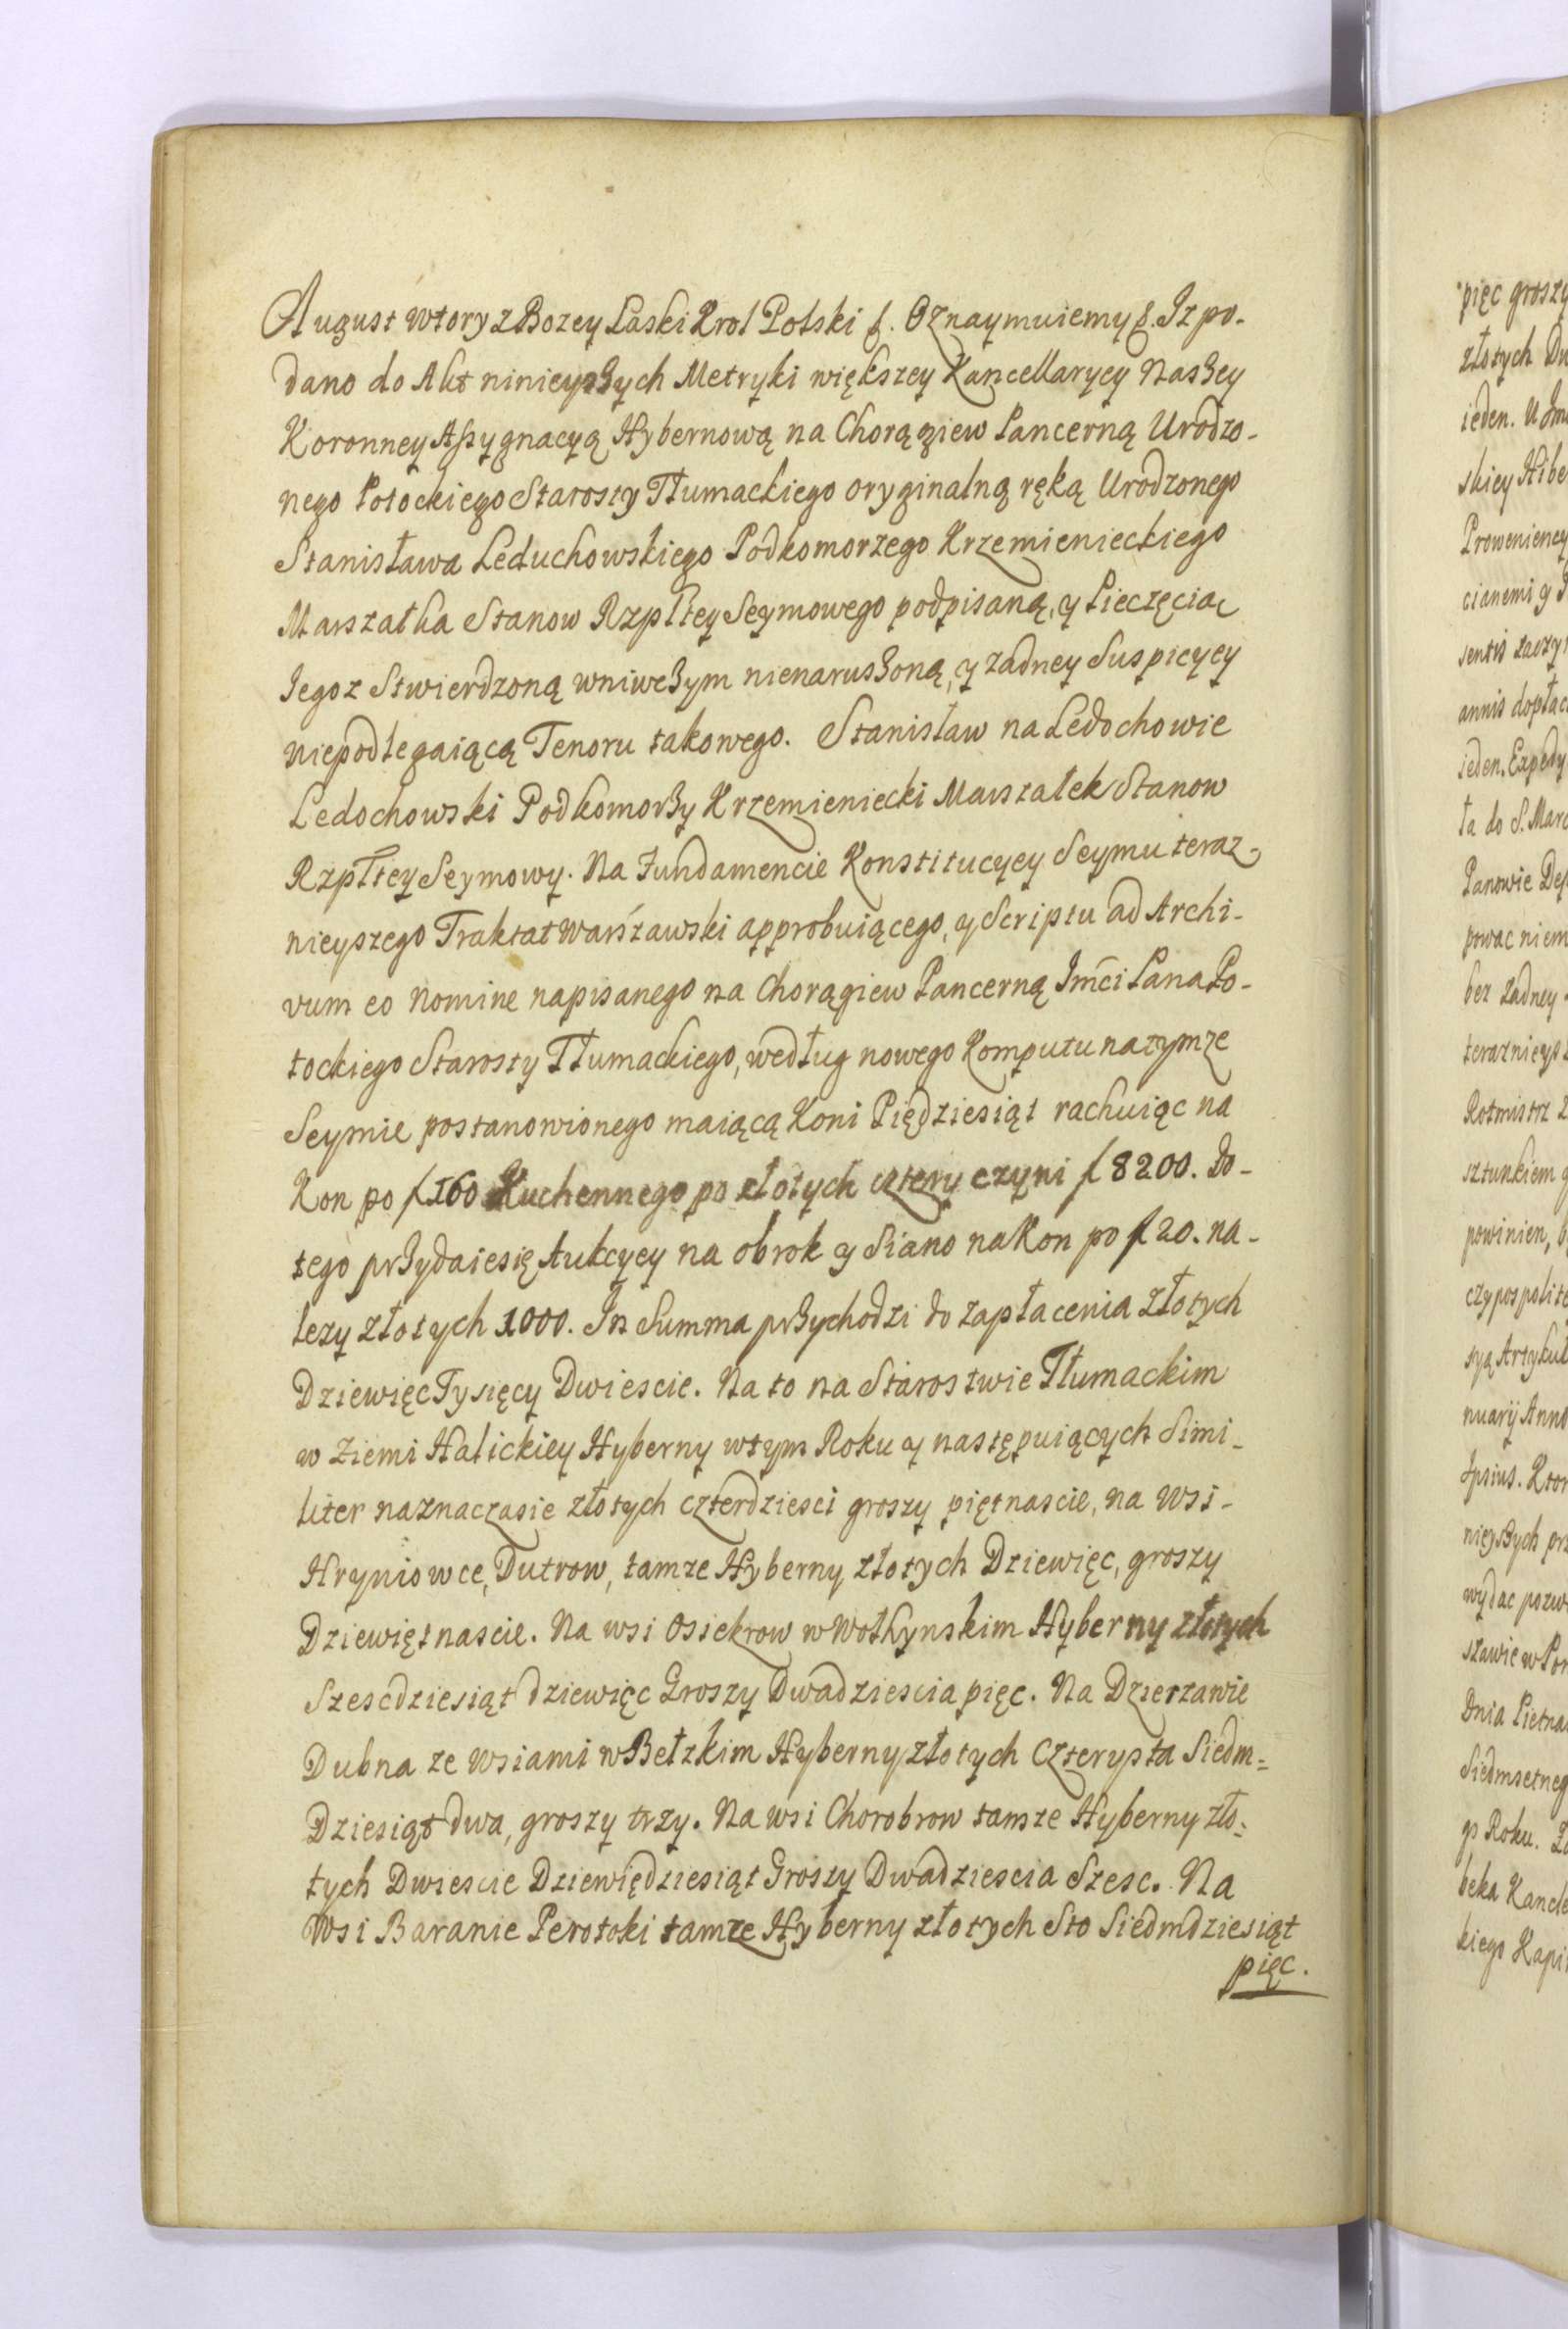 August wtory z Bozey Łaski Krol Polski f. Oznaymuiemy f. Iz po-
dano do Akt ninieyszych Metryki większey Kancellaryey Naszey
Koronney Assygnacyą Hybernową na Chorągiew Pancerną Urodzo-
nego Potockiego Starosty Tłumackiego oryginalną ręką Urodzonego
Stanisława Leduchowskiego Podkomorzego Krzemienieckiego
Marszałka Stanow Rzpltey Seymowego podpisaną, y Pieczęcią
Iegoz Stwierdzoną wniwczym nienaruszoną, y zadney Suspicyey
niepodlegaiącą Tenoru takowego. Stanisław na Ledochowie
Ledochowski Podkomorzy Krzemieniecki Marszałek Stanow
Rzpltey Seymowy. Na Fundamencie Konstitucyey Seymu teraz-
nieyszego Traktat warszawski approbuiącego, y Scriptu ad Archi-
vum eo nomine napisanego na Chorągiew Pancerną Imci Pana Po-
tockiego Starosty Tłumackiego, według nowego Komputu natymze
Seymie postanowionego maiącą Koni Pięd́ziesiąt rachuiąc na
Kon po f 160 Kuchennego po złotych cztery czyni f 8200. Do-
tego przydaiesię Aukcyey na obrok y Siano na Kon po f 20. na-
lezy złotych 1000. In Summa przychodzi do zapłacenia złotych
Dziewięc Tysięcy Dwiescie. Na to na Starostwie Tłumackim
w Ziemi Halickiey Hyberny wtym Roku y następuiących Simi-
liter naznaczasie złotych czterdziesci groszy piętnascie, na wsi-
Hryniowce, Dutrow, tamze Hyberny złotych Dziewięc, groszy
Dziewiętnascie. Na wsi Osiekrow w Wołhynskim Hyberny złotych
Szescdziesiąt dziewięc Groszy Dwadziescia pięc. Na Dzierzawie
Dubna ze wsiami w Bełzkim Hyberny złotych Czterysta Siedm-
Dziesiąt dwa, groszy trzy. Na wsi Chorobrow tamze Hyberny zło-
tych Dwiescie Dziewiędziesiąt Groszy Dwadziescia Szesc. Na
Wsi Baranie Perotoki tamze Hyberny złotych Sto Siedmdziesiąt
pięc.
pięc groszy
złotych
ieden.
skiey
cianemi y
annis
ieden.
ta do S.
Panowie
powac
bez zadney
Rotmistrz
sztunkiem
powinien,
Anno
Ipsius.
wydac
Dnia
Roku.
kiego